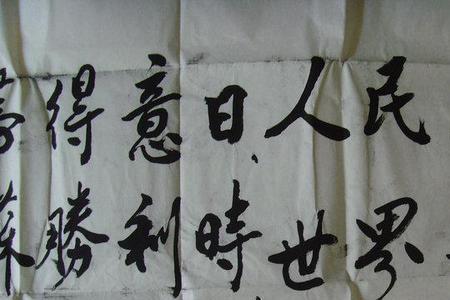 得意日、人民
勝利時世界